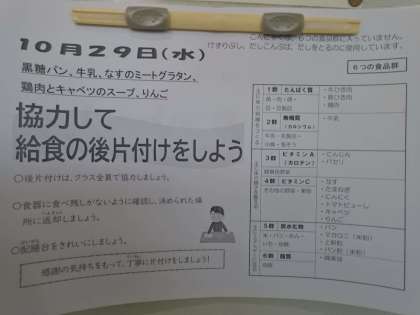 こんにゃくは、6つの食品群に入っていません。
けずりぶし、だしこんぶは、だしをとるのに使用しています。
10月29日(水)
黒糖パン、牛乳、なすのミートグラタン、
鶏肉とキャベツのスープ、りんご
協力して
給食の後片付けをしよう
○後片付けは、クラス全員で協力しましょう。
○食器に食べ残しがないように確認し、決められた場
所に返却しましょう。
○配膳台をきれいにしましょう。
感謝の気持ちをもって、丁寧に片付けをしましょう!
6つの食品群
1群 たんぱく質
・豚ひき肉
・鶏肉
2群 無機質
(カルシウム)
・牛乳
3群 ビタミンA
(カロテン)
・にんじん
・パセリ
4群 ビタミンC
・なす
・たまねぎ
・にんにく
・トマトピューレ
・キャベツ
・りんご
5群 炭水化物
・パン
・マカロニ(米粉)
・上新粉
・パン粉(米粉)
6群 脂質